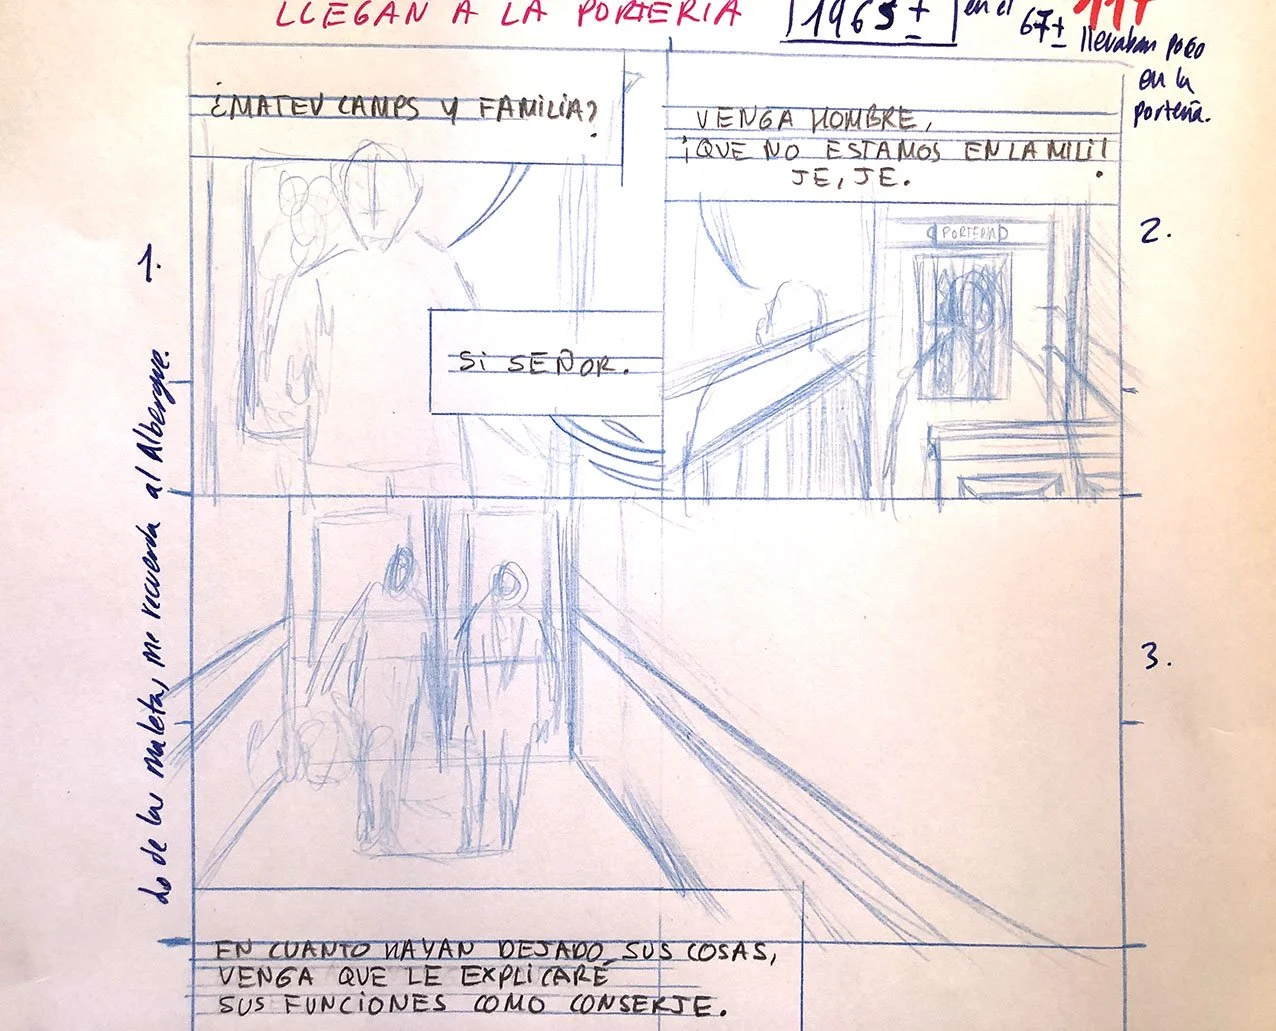 LLEGAN A LA PORTERIA
1965 ±
en el
67±
117
llevaban poco
en la
portería.
¿MATEU CAMPS Y FAMILIA?
SI SEÑOR.
1.
VENGA HOMBRE,
¡QUE NO ESTAMOS EN LA MILI!
JE, JE.
2.
Lo de las maletas, me recuerda al Albergue.
3.
EN CUANTO HAYAN DEJADO SUS COSAS,
VENGA QUE LE EXPLICARÉ
SUS FUNCIONES COMO CONSERJE.